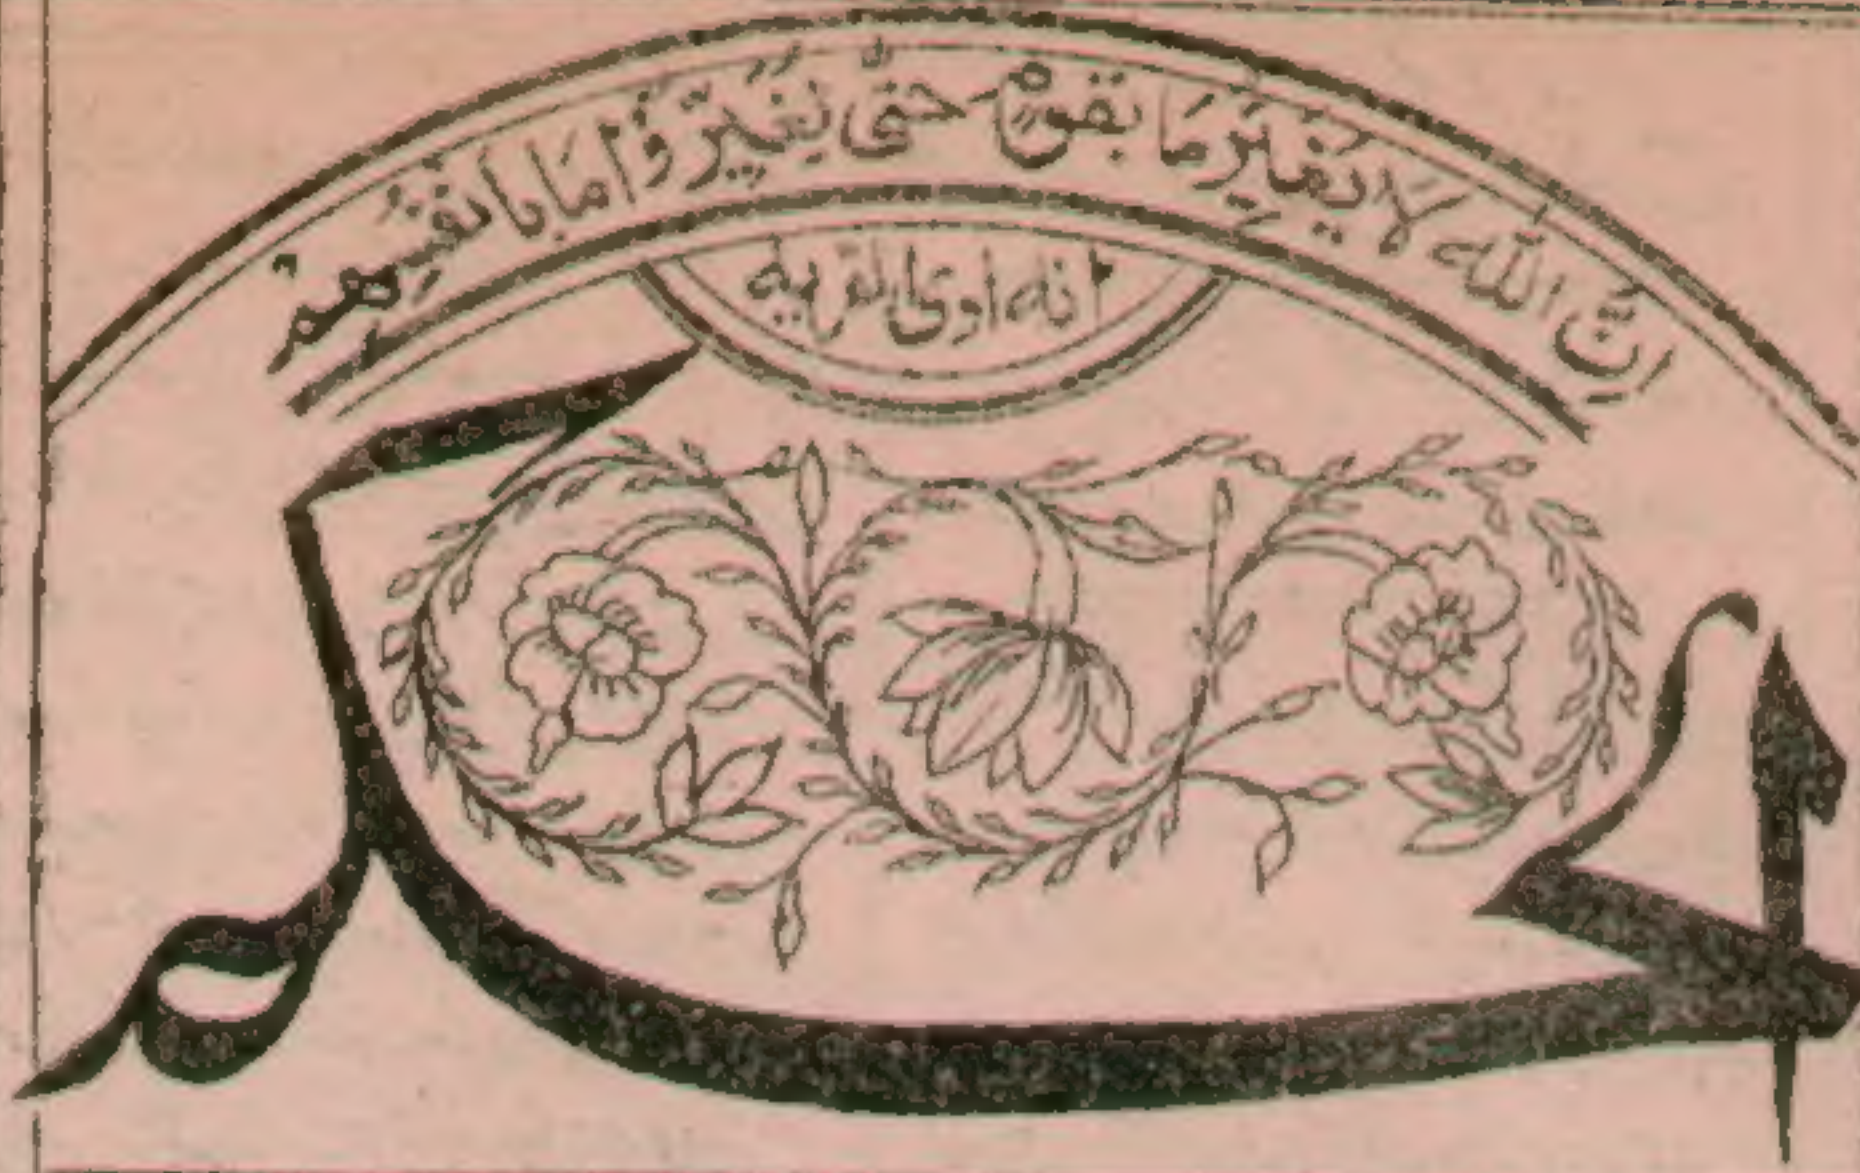 اِنَّ اللّٰه لَا یُغَیِّرُ مَا بِقَوْمٍ حَتّٰی یُغَیِّرُوْا مَا بِاَنْفُسِهِمْ
انه اوی القریه
الحکم